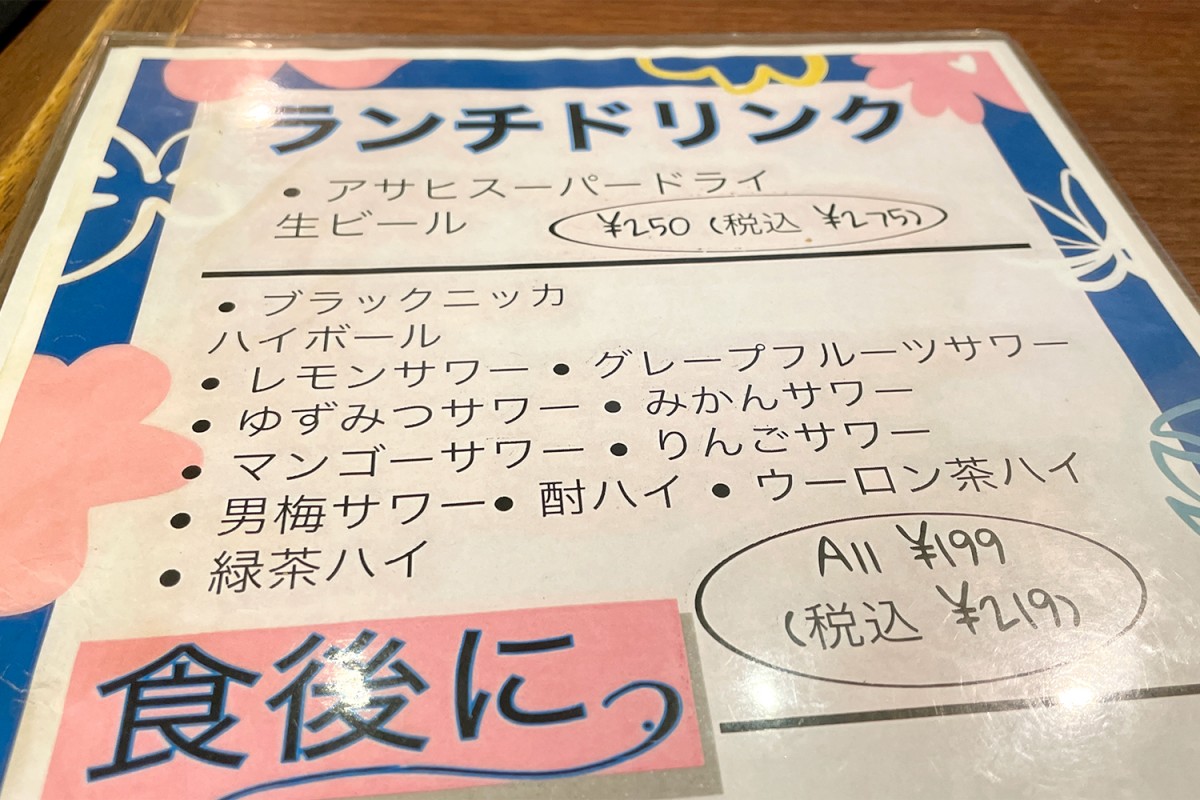 ランチドリンク
• アサヒスーパードライ
生ビール ¥250 (税込 ¥275)
• ブラックニッカ
ハイボール
• レモンサワー • グレープフルーツサワー
• ゆずみつサワー • みかんサワー
• マンゴーサワー • りんごサワー
• 男梅サワー • 酎ハイ • ウーロン茶ハイ
• 緑茶ハイ
All ¥199
(税込 ¥219)
食後に